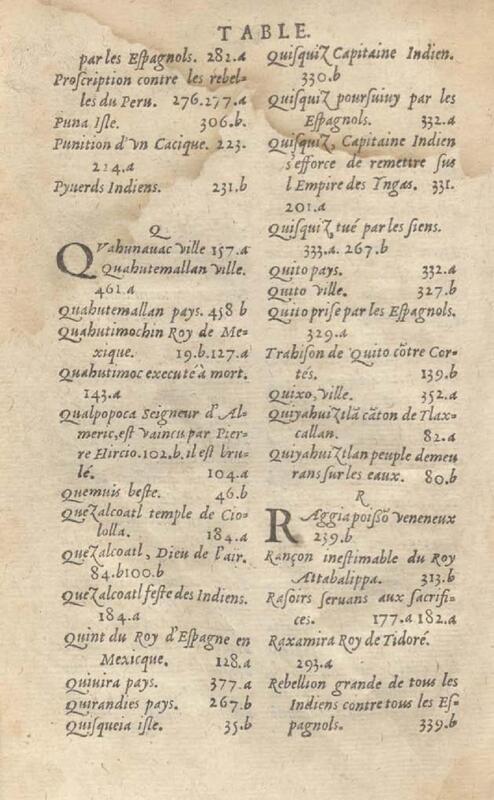 TABLE.
par les Eſpagnols. 282.a
Proſcription contre les rebel-
les du Peru. 276.277.a
Puna Iſle. 306.b.
Punition d'vn Cacique. 223.
224.a
Pyuerds Indiens. 231.b
Q
QVahunauac ville 157.a
Quahutemallan ville.
461.a
Quahutemallan pays. 458 b
Quahutimochin Roy de Me-
xique. 19.b.127.a
Quahutimoc executé à mort.
143.a
Qualpopoca Seigneur d'Al-
meric, eſt vaincu par Pier-
re Hircio.102.b. il eſt bru-
lé. 104.a
Quemuis beſte. 46.b
Quezalcoatl temple de Cio-
lolla. 184.a
Quezalcoatl, Dieu de l'air.
84.b100.b
Quezalcoatl feſte des Indiens.
184.a
Quint du Roy d'Eſpagne en
Mexicque. 128.a
Quiuira pays. 377.a
Quirandies pays. 267.b
Quiſqueia iſle. 35.b
Quiſquiz Capitaine Indien.
330.b
Quiſquiz pourſuiuy par les
Eſpagnols. 332.a
Quiſquiz, Capitaine Indien
s'efforce de remetire ſus
l Empire des Yngas. 331.
201.a
Quiſquiz, tué par les ſiens.
333.a. 267.b
Quito pays. 332.a
Quito ville. 327.b
Quito priſe par les Eſpagnols.
329.a
Trahiſon de Quito cõtre Cor-
tés. 139.b
Quixo, ville. 352.a
Quiyahuiztlã cãton de Tlax-
callan. 82.a
Quiyahuiztlan peuple demeu
rans ſur les eaux. 80.b
R
RAggia poiſſõ veneneux
239.b
Rançon ineſtimable du Roy
Attabalippa. 313.b
Raſoirs ſeruans aux ſacrifi-
ces. 177.a 182.a
Raxamira Roy de Tidoré.
293.a
Rebellion grande de tous les
Indiens contre tous les Eſ-
pagnols. 339.b